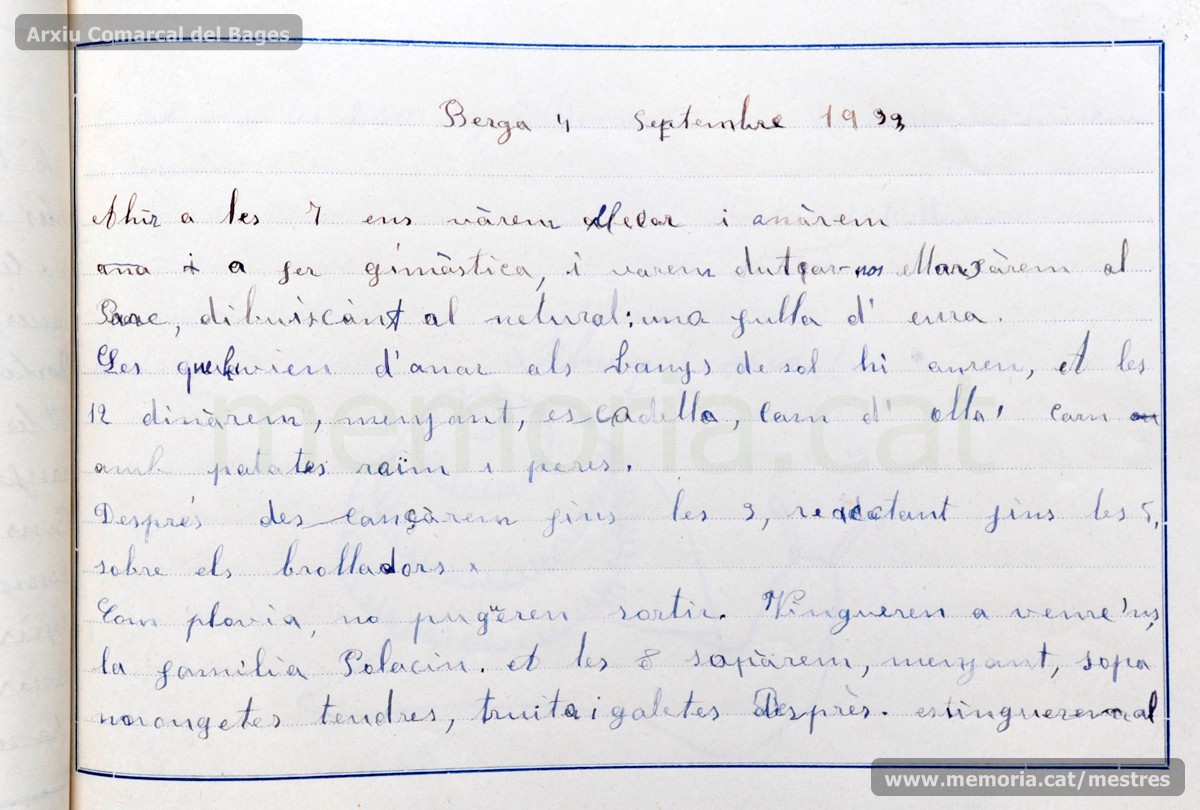 Arxiu Comarcal del Bages
Berga 4 septembre 1933
Ahir a les 7 ens vàrem llevar i anàrem
ana i a fer gimàstica, i varem dutçar-nos Marxàrem al
Parc, dibuixant al netural: una fulla d' eura.
Les que havien d'anar als banys de sol hi anren, et les
12 dinàrem, menjant, escadella, carn d' olla, carn
amb patates raïm i peres.
Després des cançàrem fins les 3, redactant fins les 5,
sobre els brolladors.
Com plovia, no pugüeren sortir. Vingueren a veure'ns,
la familia Palacin. et les 8 sopàrem, menjant, sopa
monongetes tendres, truita i galetes Desprès. estingueren al
memoria.cat
www.memoria.cat/mestres